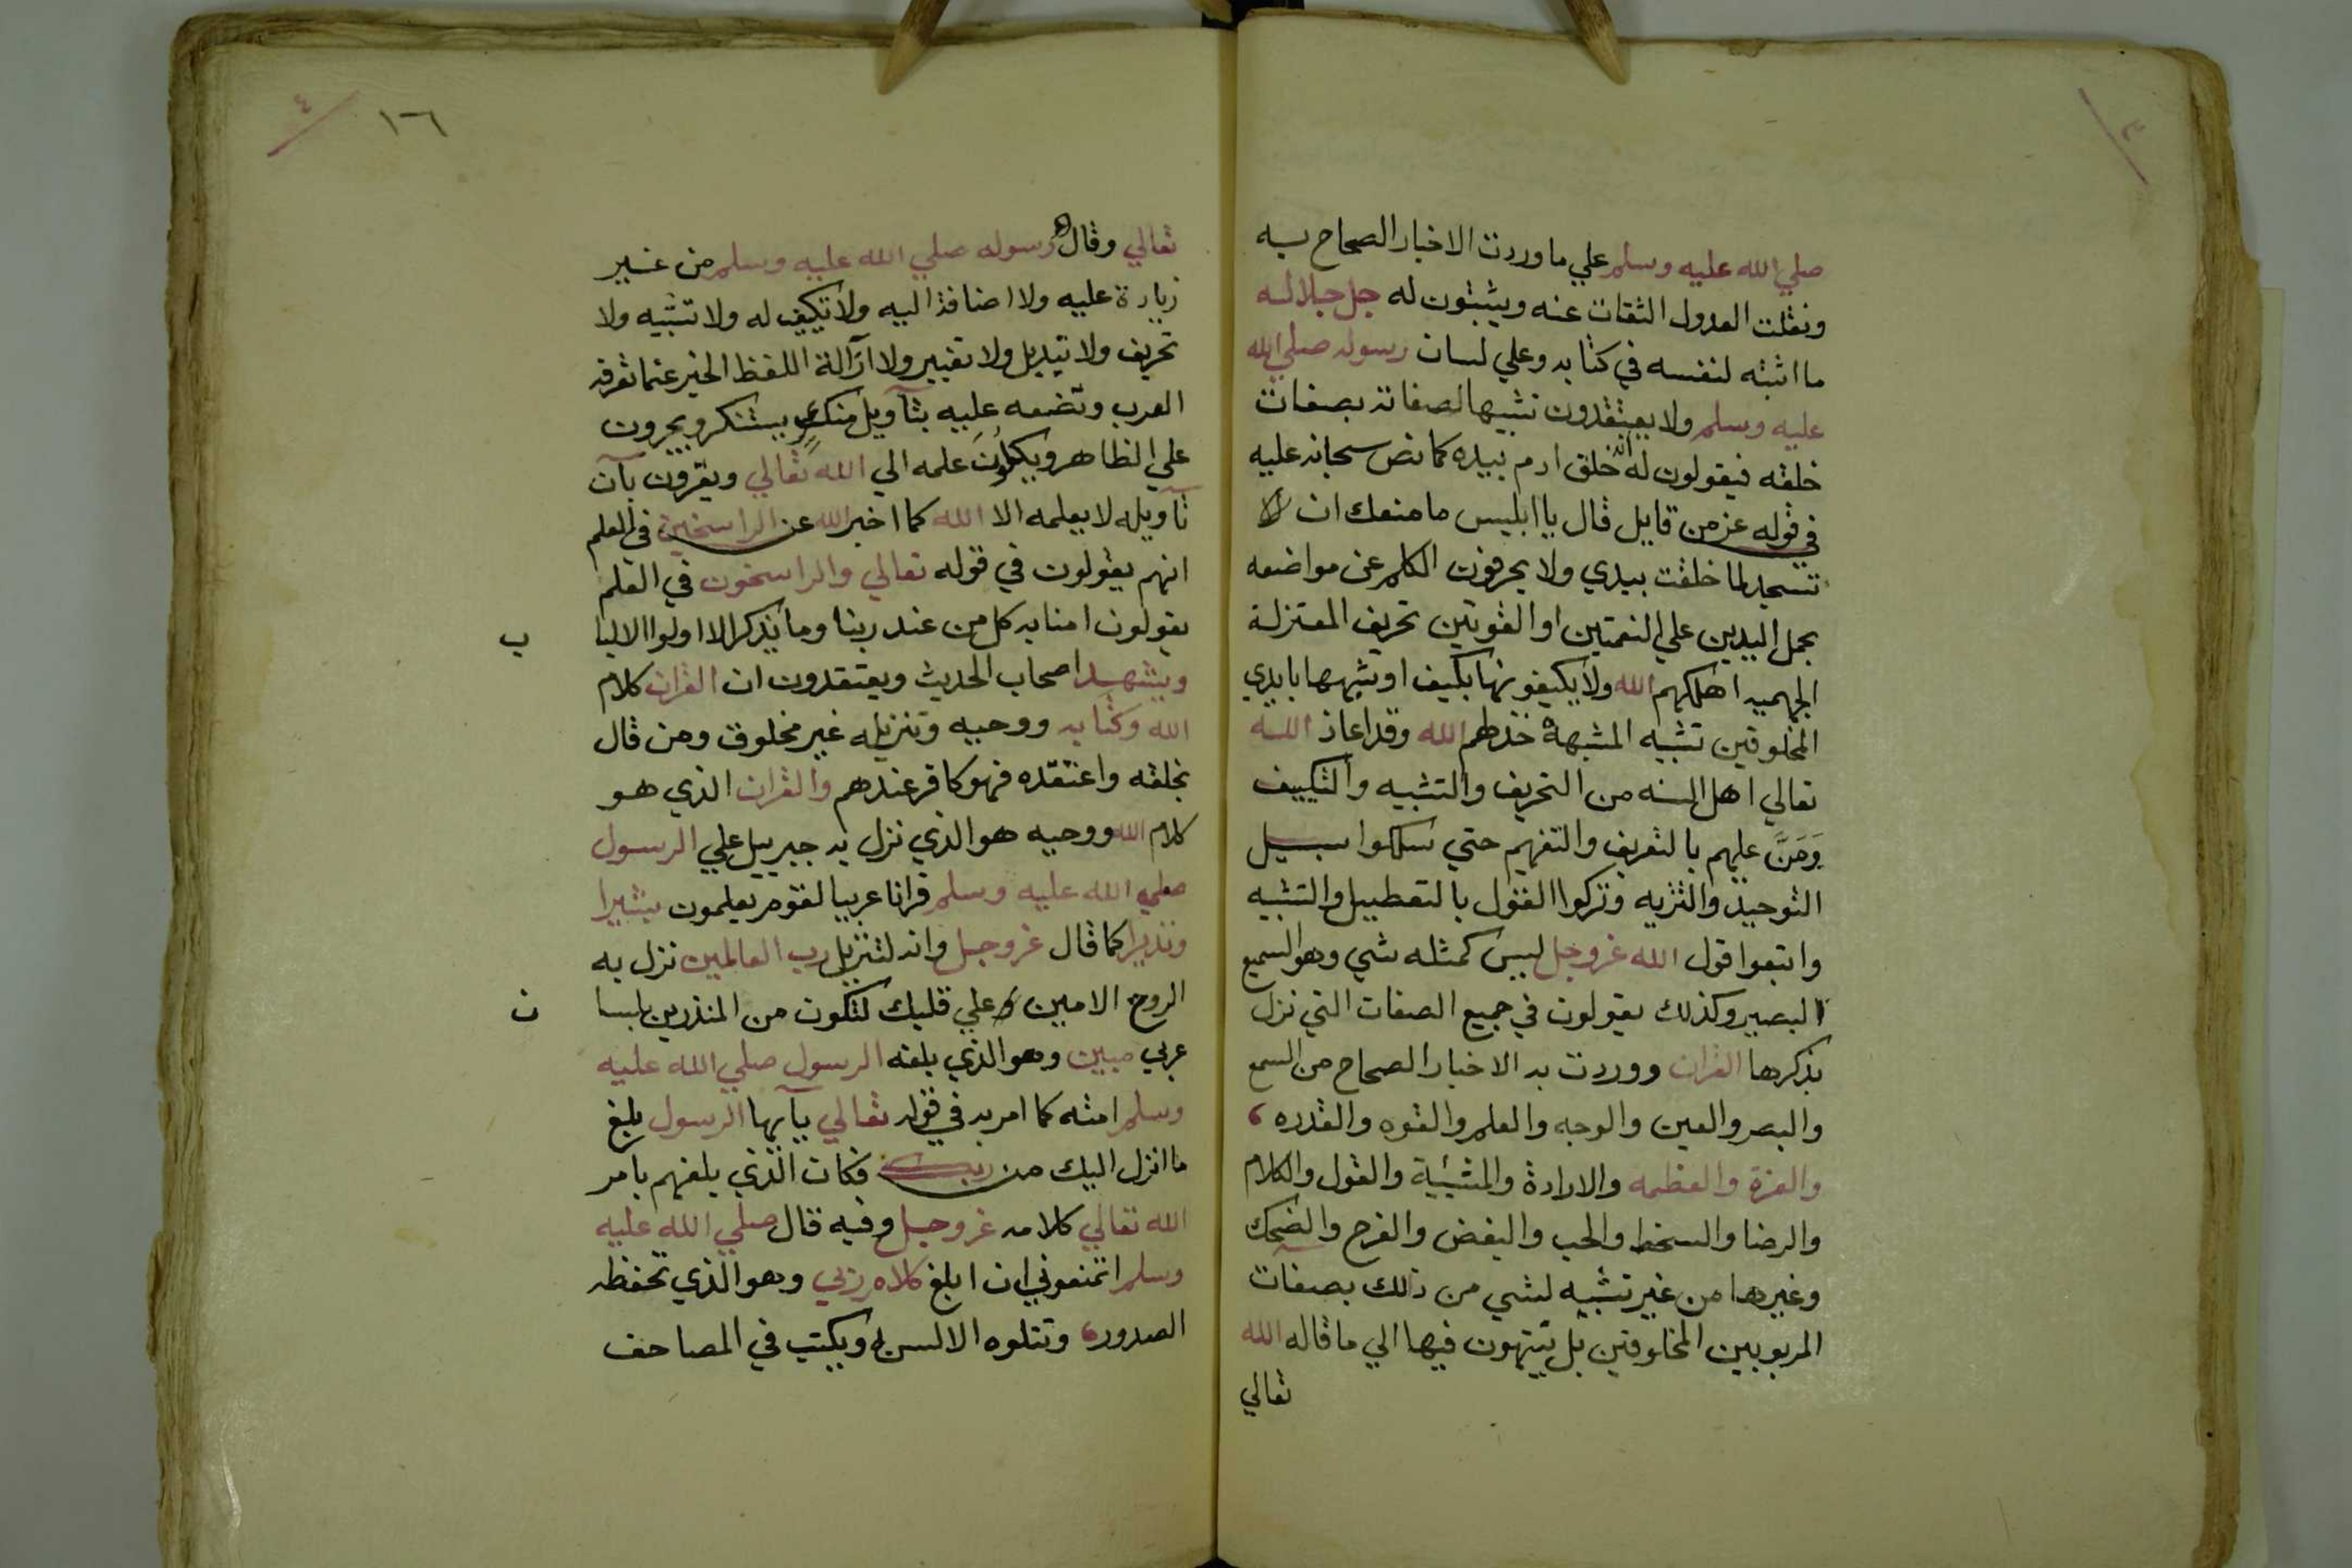 ٣
صلي الله عليه وسلم علي ما وردت الاخبار الصحاح به
ونقلت العدول الثقات عنه ويثبتون له جل جلاله
ما اثبته لنفسه في كتابه وعلي لسان رسوله صلي الله
عليه وسلم ولا يعتقدون تشبيها لصفاته بصفات
خلقه فيقولون له انه خلق ادم بيده كما نص سبحانه عليه
في قوله عز من قايل قال يا ابليس ما منعك ان لا
تسجد لما خلقت بيدي ولا يحرفون الكلم عن مواضعه
بحمل اليدين علي النعمتين او القوتين تحريف المعتزلة
الجهميه اهلكهم الله ولا يكيفونها بكيف او شبهها بايدي
المخلوقين تشبيه المشبهة خذلهم الله وقد اعاذ الله
تعالي اهل السنه من التحريف والتشبيه والتكييف
وَمَنَّ عليهم بالتعريف والتفهيم حتي سلكوا سبيل
التوحيد والتنزيه وتركوا القول بالتعطيل والتشبيه
واتبعوا قول الله عز وجل ليس كمثله شي وهو السميع
البصير وكذلك يقولون في جميع الصفات التي نزل
بذكرها القران ووردت به الاخبار الصحاح من السمع
والبصر والعين والوجه والعلم والقوه والقدره ،
والعزة والعظمه والارادة والمشيئة والقول والكلام
والرضا والسخط والحب والبغض والفرح والضحك
وغيرها من غير تشبيه لشي من ذلك بصفات
المربوبين المخلوقين بل ينتهون فيها الي ما قاله الله
تعالي
١٦ ٤
تعالي وقاله رسوله صلي الله عليه وسلم من غير
زيادة عليه ولا اضافة اليه ولا تكييف له ولا تشبيه ولا
تحريف ولا تبديل ولا تغيير ولا ازآلة اللفظ الخبر عما تعرفه
العرب وتضعه عليه بتآويل منكرٍ يستنكر ويجرون
علي الظاهر ويكلون علمه الي الله تعالي ويقرون بآن
تآويله لا يعلمه الا الله كما اخبر الله عن الراسخين في العلم
انهم يقولون في قوله تعالي والراسخون في العلم
يقولون امنا به كل من عند ربنا وما يذكر الا اولوا الالبا ب
ويشهد اصحاب الحديث ويعتقدون ان القران كلام
الله وكتابه ووحيه وتنزيله غير مخلوق ومن قال
بخلقه واعتقده فهو كافر عندهم والقران الذي هو
كلام الله ووحيه هو الذي نزل به جبرييل علي الرسول
صلي الله عليه وسلم قرانا عربيا لقوم يعلمون بشيرا
ونذيرا كما قال عز وجل وانه لتنزيل رب العالمين نزل به
الروح الامين علي قلبك لتكون من المنذرين بلسا ن
عربي مبين وهو الذي بلغه الرسول صلي الله عليه
وسلم امته كما امر به في قوله تعالي يآيها الرسول بلغ
ما انزل اليك من ربك فكان الذي بلغهم بامر
الله تعالي كلامه عز وجل وفيه قال صلي الله عليه
وسلم اتمنعوني ان ابلغ كلام ربي وهو الذي تحفظه
الصدور، وتتلوه الالسن ويكتب في المصاحف